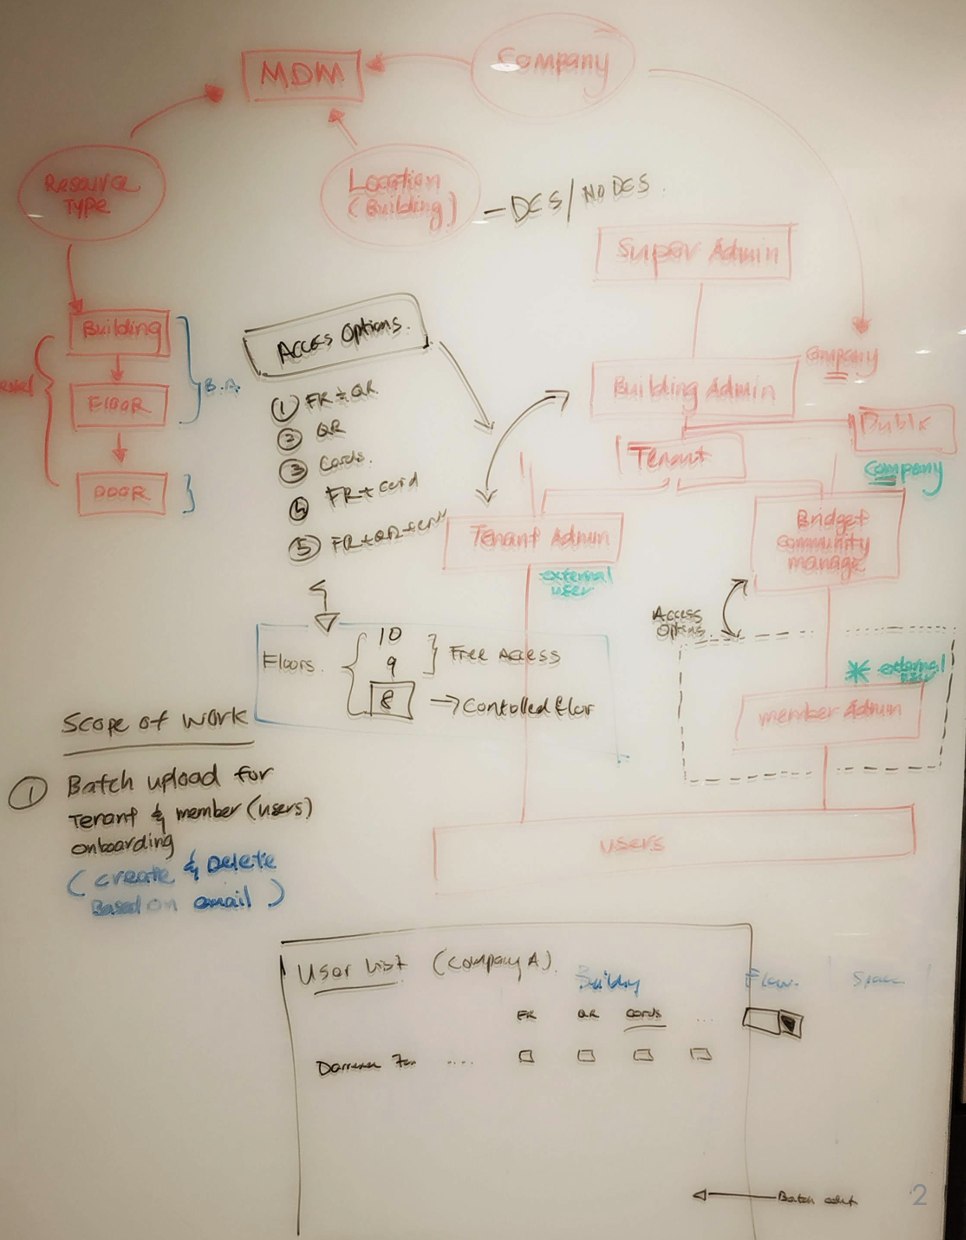 MDM
Company
Resource
Type
Location
(Building)
= DCS/NODES.
Super Admin
Building
B.A.
Floor
Door
Access Options.
① FR + QR
② QR
③ Cards.
④ FR + Card
⑤ FR + QR +
Company
Building Admin
Public
Company
Tenant
Tenant Admin
external
user
Bridge+
community
manage
Access
Options
* external
user
member Admin
users
Floors.
10
9
8
Free Access
→ Controlled floor
Scope of work
① Batch upload for
Tenant & member (users)
onboarding
(create & Delete
Based on email)
User List (Company A).
Building
Floor.
Space
FR
QR
Cards
...
....
Batch edit
2